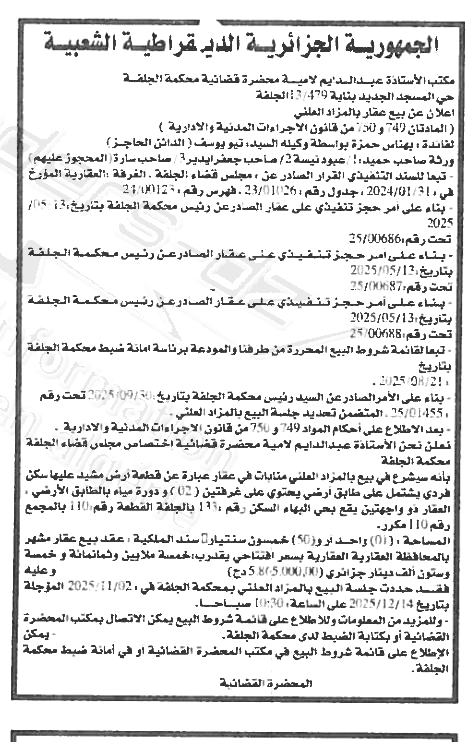 الجمهورية الجزائرية الديمقراطية الشعبية
مكتب الأستاذة عبدالدايم لامية محضرة قضائية محكمة الجلفة
حي المسجد الجديد بناية 13/479 الجلفة
اعلان عن بيع عقار بالمزاد العلني
( المادتان 749 و 750 من قانون الاجراءات المدنية والادارية )
لفائدة : يهناس حمزة بواسطة وكيله السيد: تيو يوسف ( الدائن الحاجز)
ورثة صاحب حميد: 1/ عبود نيسة 2/ صاحب جعفر ايدير 3/ صاحب سارة (المحجوز عليهم)
- تبعا للسند التنفيذي القرار الصادر عن : مجلس قضاء الجلفة . الغرفة :العقارية المؤرخ
في : 2024/01/31 ، جدول رقم : 23/01026 . فهرس رقم : 24/00123
- بناء على أمر حجز تنفيذي على عقار الصادر عن رئيس محكمة الجلفة بتاريخ: 05/13/
2025
تحت رقم: 25/00686
- بناء على امر حجز تنفيذي على عقار الصادر عن رئيس محكمة الجلفة
بتاريخ: 2025/05/13
تحت رقم: 25/00687
- بناء على أمر حجز تنفيذي على عقار الصادر عن رئيس محكمة الجلفة
بتاريخ: 2025/05/13
تحت رقم: 25/00688
- تبعا لقائمة شروط البيع المحررة من طرفنا والمودعة برئاسة امانة ضبط محكمة الجلفة
بتاريخ
: 2025/08/21 .
- بناء على الأمر الصادر عن السيد رئيس محكمة الجلفة بتاريخ: 2025/09/30 تحت رقم
: 25/01455 . المتضمن تحديد جلسة البيع بالمزاد العلني .
- بعد الاطلاع على أحكام المواد 749 و 750 من قانون الاجراءات المدنية والادارية .
نعلن نحن الأستاذة عبدالدايم لامية محضرة قضائية إختصاص مجلس قضاء الجلفة
محكمة الجلفة
بأنه سيشرع في بيع بالمزاد العلني منابات في عقار عبارة عن قطعة أرض مشيد عليها سكن
فردي يشتمل على طابق أرضي يحتوي على غرفتين ( 02) و دورة مياه بالطابق الأرضي ،
العقار ذو واجهتين يقع بحي البهاء السكن رقم : 133 بالجلفة القطعة رقم: 110 بالمجمع
رقم 110 مكرر.
المساحة : (01) واحد ار و(50) خمسون سنتيار سند الملكية : عقد بيع عقار مشهر
بالمحافظة العقارية العقارية بسعر افتتاحي يقدر ب: خمسة ملايين وثمانمائة و خمسة
وستون ألف دينار جزائري (5.865.000,00 دج) وعليه
فقد حددت جلسة البيع بالمزاد العلني بمحكمة الجلفة في : 2025/11/02 المؤجلة
بتاريخ 2025/12/14 على الساعة: 10:30 صباحا.
- وللمزيد من المعلومات وللاطلاع على قائمة شروط البيع يمكن الاتصال بمكتب المحضرة
القضائية أو بكتابة الضبط لدى محكمة الجلفة. - يمكن
الإطلاع على قائمة شروط البيع في مكتب المحضرة القضائية او في أمانة ضبط محكمة
الجلفة.
المحضرة القضائية